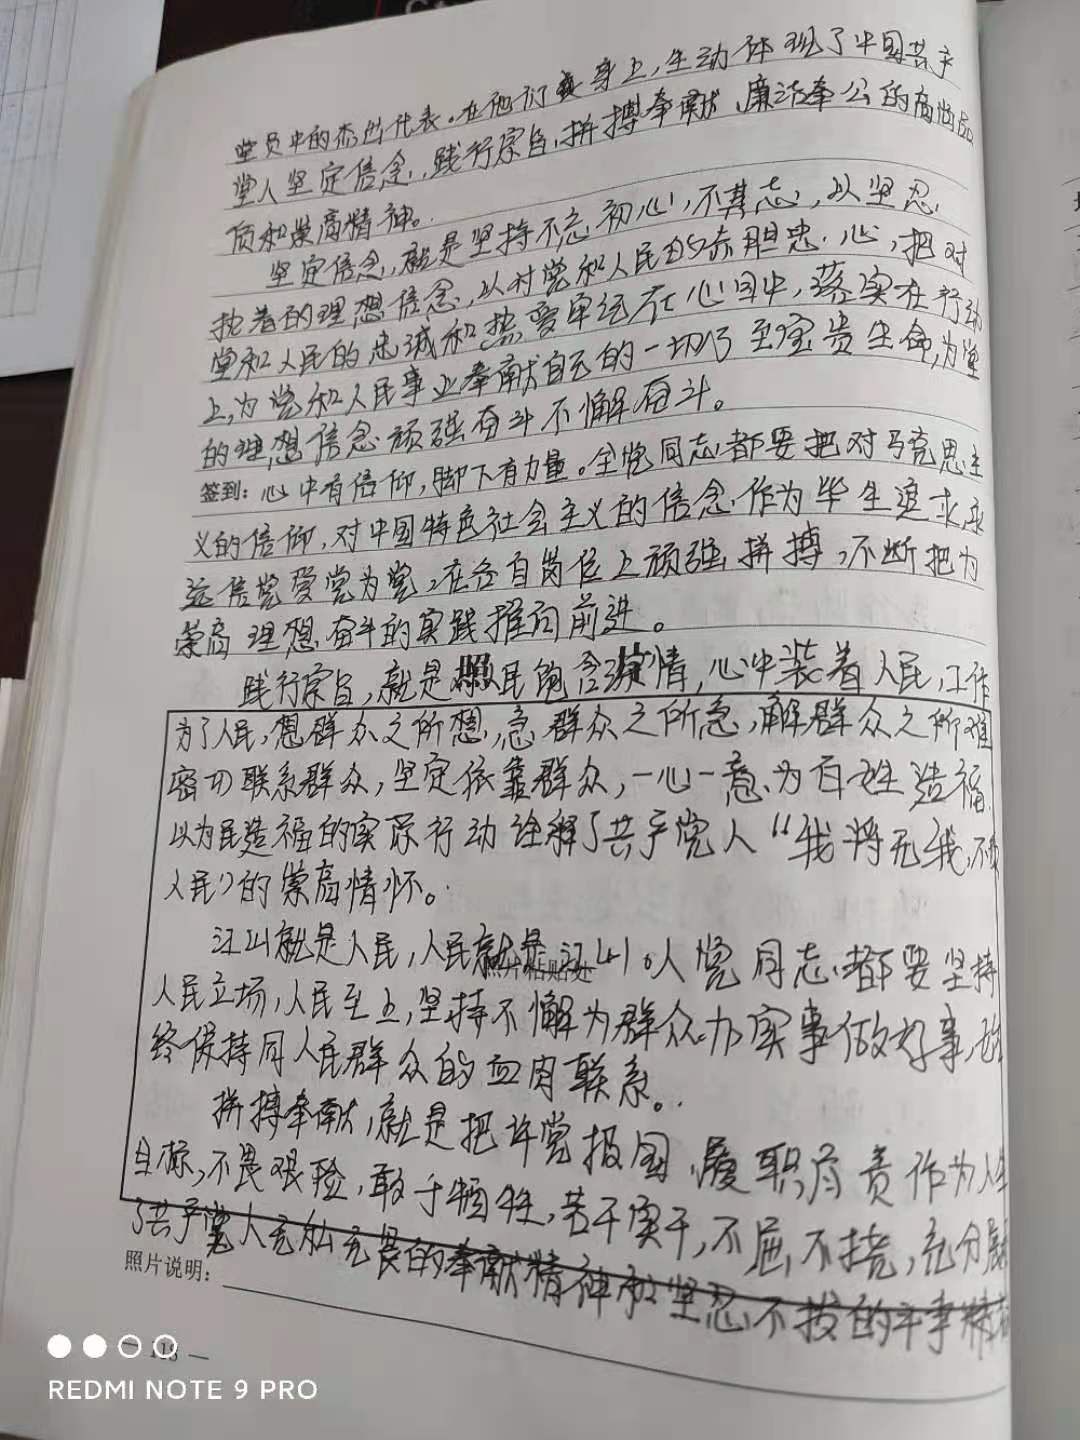 党员中的杰出代表。在他们身上，生动体现了中国共产
党人坚定信念，践行宗旨，拼搏奉献、廉洁奉公的高尚品
质和崇高精神。
坚定信念，就是坚持不忘初心，不其志，以坚忍
执着的理想信念，以对党和人民的赤胆忠心，把对
党和人民的忠诚和热爱牢记在心目中，落实在行动
上，为党和人民事业奉献自己的一切乃至宝贵生命，为党
的理想信念顽强奋斗不懈奋斗。
签到：心中有信仰，脚下有力量。全党同志都要把对马克思主
义的信仰，对中国特色社会主义的信念作为毕生追求永
远信党爱党为党，在各自岗位上顽强拼搏，不断把为
崇高理想奋斗的实践推向前进。
践行宗旨，就是民的含情，心中装着人民，工作
为了人民，想群众之所想，急群众之所急，解群众之所难
密切联系群众，坚定依靠群众，一心一意为百姓造福，
以为民造福的实际行动诠释了共产党人“我将无我，不负
人民”的崇高情怀。
江山就是人民，人民就是江山。人党同志都要坚持
照片粘贴处
人民立场，人民至上，坚持不懈为群众办实事做好事，始
终保持同人民群众的血肉联系。
拼搏奉献，就是把许党报国、履职尽责作为人生
目标，不畏艰险，敢于牺牲，苦干实干，不屈不挠，充分展
了共产党人无私无畏的奉献精神和坚忍不拔的斗争精神
照片说明：
REDMI NOTE 9 PRO